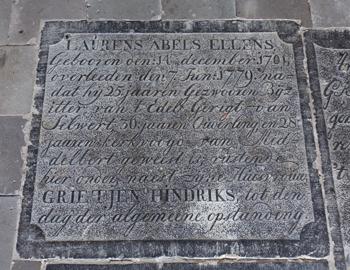 LAURENS ABELS ELLENS
Gebooren den 11 december 1701,
overleeden den 7 Juni 1779, na-
dat hij 25 jaaren Gezwooren Bÿ-
zitter van 't Edele Gerigt van
Selwert, 56 jaaren Ouwerling en 28
jaaren kerkvoogd van Mid
delbert geweest is, rustende
hier onder naast zyne Huisvrouw
GRIETJEN HINDRIKS, tot den
dag der algemeene opstanding